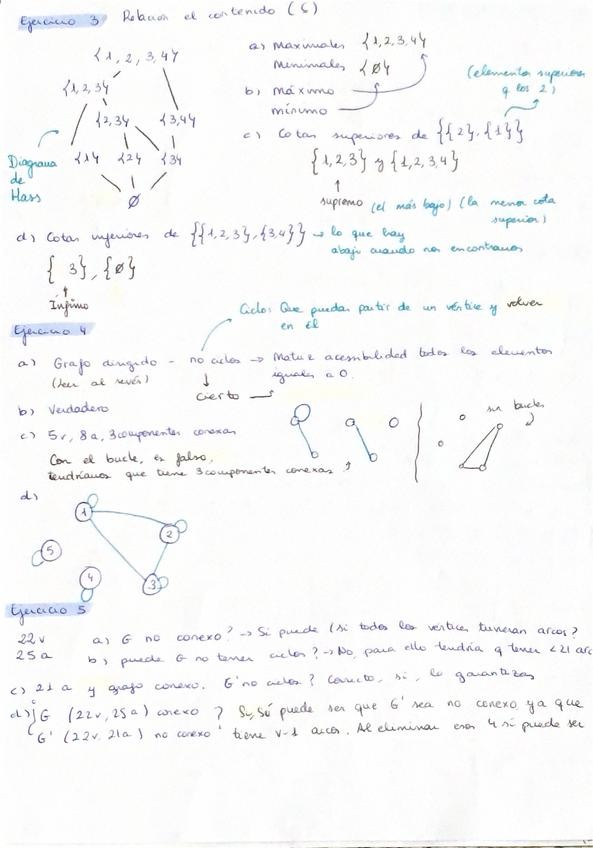 Ejercicio 3 Relación el contenido (⊆)
{1, 2, 3, 4}
{1, 2, 3}
{2, 3} {3, 4}
{1} {2} {3}
∅
Diagrama
de
Hass
a) Maximales {1, 2, 3, 4}
Minimales {∅}
b) máximo
mínimo
(elementos superiores
q los 2)
c) Cotas superiores de {{2}, {1}}
{1, 2, 3} y {1, 2, 3, 4}
supremo (el más bajo) (la menor cota
superior)
d) Cotas inferiores de {{1, 2, 3}, {3, 4}} → lo que hay
abajo cuando nos encontramos
{3}, {∅}
Ínfimo
Ciclo: Que puedas partir de un vértice y volver
en él
Ejercicio 4
a) Grafo dirigido - no ciclos → Matriz accesibilidad todos los elementos
(leer al revés) iguales a 0.
cierto →
b) Verdadero
c) 5v, 8a, 3 componentes conexas
sin bucles
Con el bucle, es falso,
tendríamos que tiene 3 componentes conexas
d)
1
2
5
4
3
Ejercicio 5
22v a) G no conexo? → Sí puede (si todos los vértices tuvieran arcos?
25a b) puede G no tener ciclos? → No, para ello tendría q tener <21 arc
c) 21a y grafo conexo. G' no ciclos? Correcto, sí, lo garantizas
d) G (22v, 25a) conexo ? Sí, sí puede ser que G' sea no conexo, ya que
G' (22v, 21a) no conexo tiene v-1 arcos. Al eliminar esos 4 sí puede ser